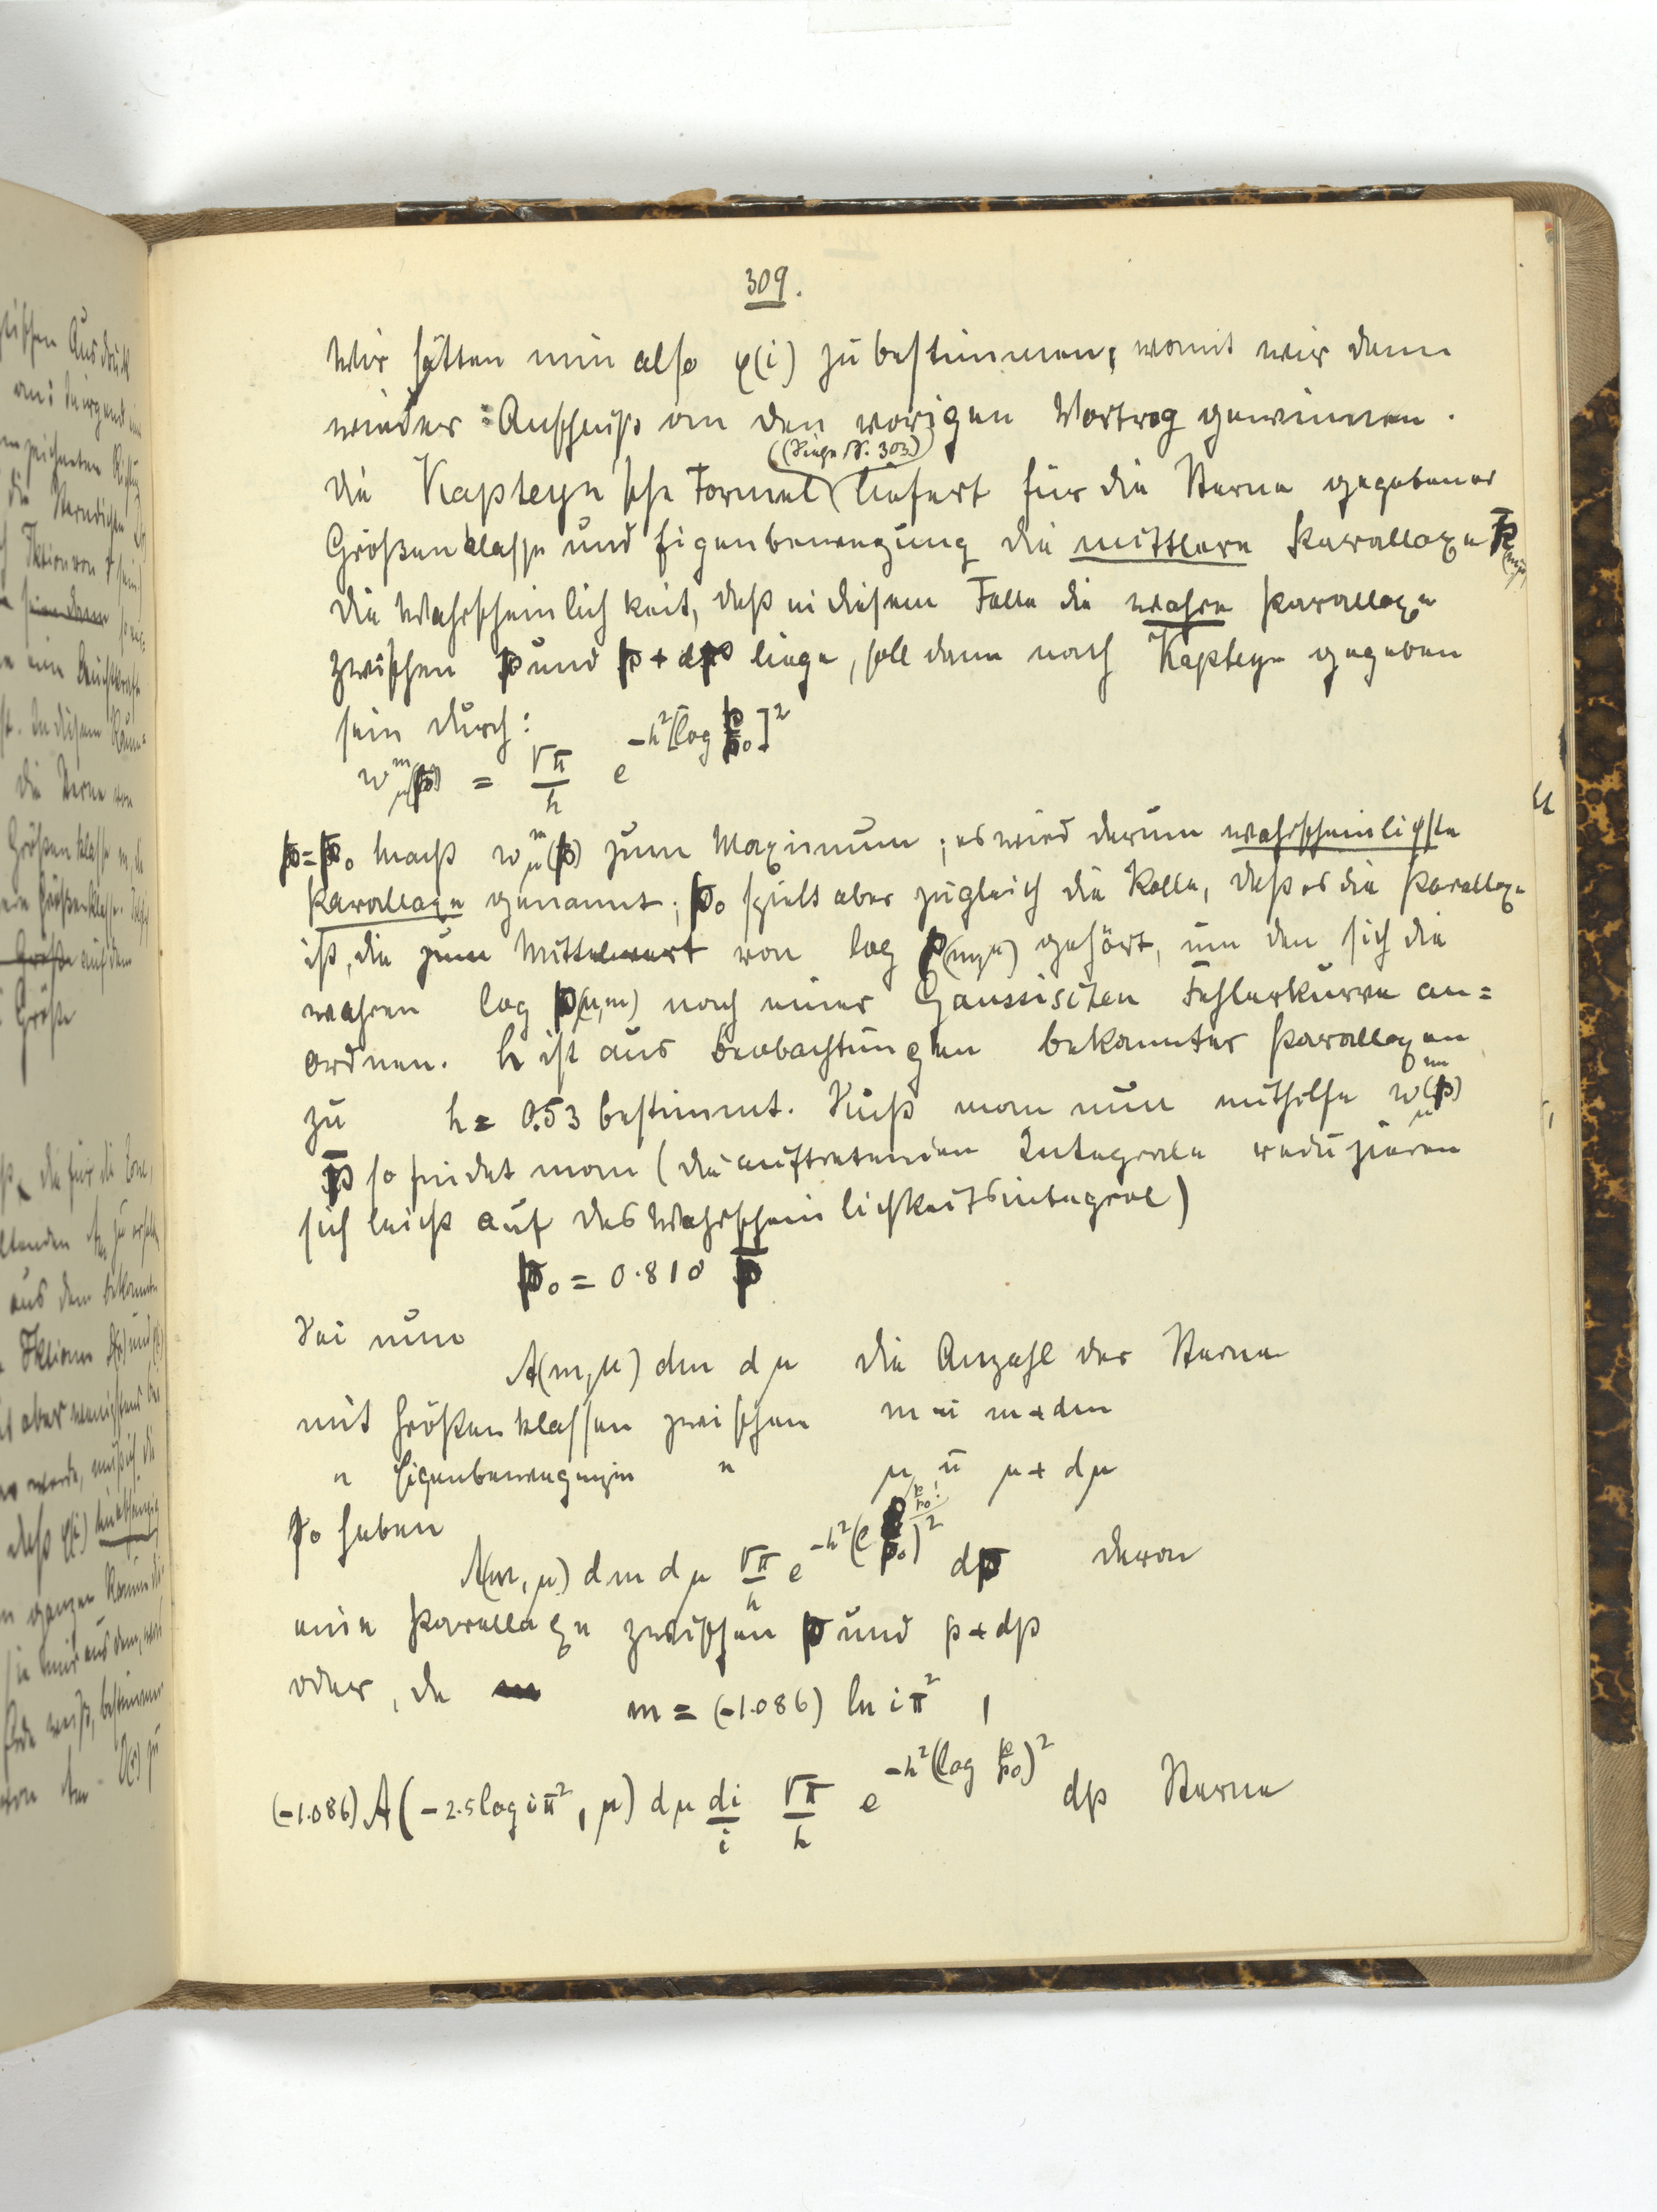 309.
Wir hätten nun also φ(i) zu bestimmen, womit wir dann
wieder Anschluß an den vorigen Vortrag gewinnen.
(Siehe S. 303)
Die Kapteyn'sche Formel liefert für die Sterne gegebener
Größenklasse und Eigenbewegung die mittlere Parallaxe p̄(m,μ)
die Wahrscheinlichkeit, daß in diesem Falle die wahre Parallaxe
zwischen p und p + dp liege, soll dann nach Kapteyn gegeben
sein durch:
w^m_μ(p) = √π/h e^{-h²[log p/p₀]²}
p=p₀ macht w^m_μ(p) zum Maximum; es wird darum wahrscheinlichste
Parallaxe genannt; p₀ spielt aber zugleich die Rolle, daß es die Parallaxe
ist, die zum Mittelwert von log p(m,μ) gehört, um den sich die
wahren log p(μ,m) nach einer Gaussischen Fehlerkurve an=
ordnen. h ist aus Beobachtungen bekannter Parallaxen
zu h = 0.53 bestimmt. Sucht man nun mithilfe w^m_μ(p)
p̄ so findet man (die auftretenden Integrale reduzieren
sich leicht auf das Wahrscheinlichkeitsintegral)
p₀ = 0.810 p̄
Sei nun
A(m,μ) dm dμ die Anzahl der Sterne
mit Größenklassen zwischen m u m+dm
" Eigenbewegungen " μ u μ + dμ
So haben
A(m,μ) dm dμ √π/h e^{-h²(l p/p₀)²} dp davon
eine Parallaxe zwischen p und p+dp
oder, da m = (-1.086) ln iπ²,
(-1.086) A(-2.5 log iπ², μ) dμ di/i √π/h e^{-h²(log p/p₀)²} dp Sterne